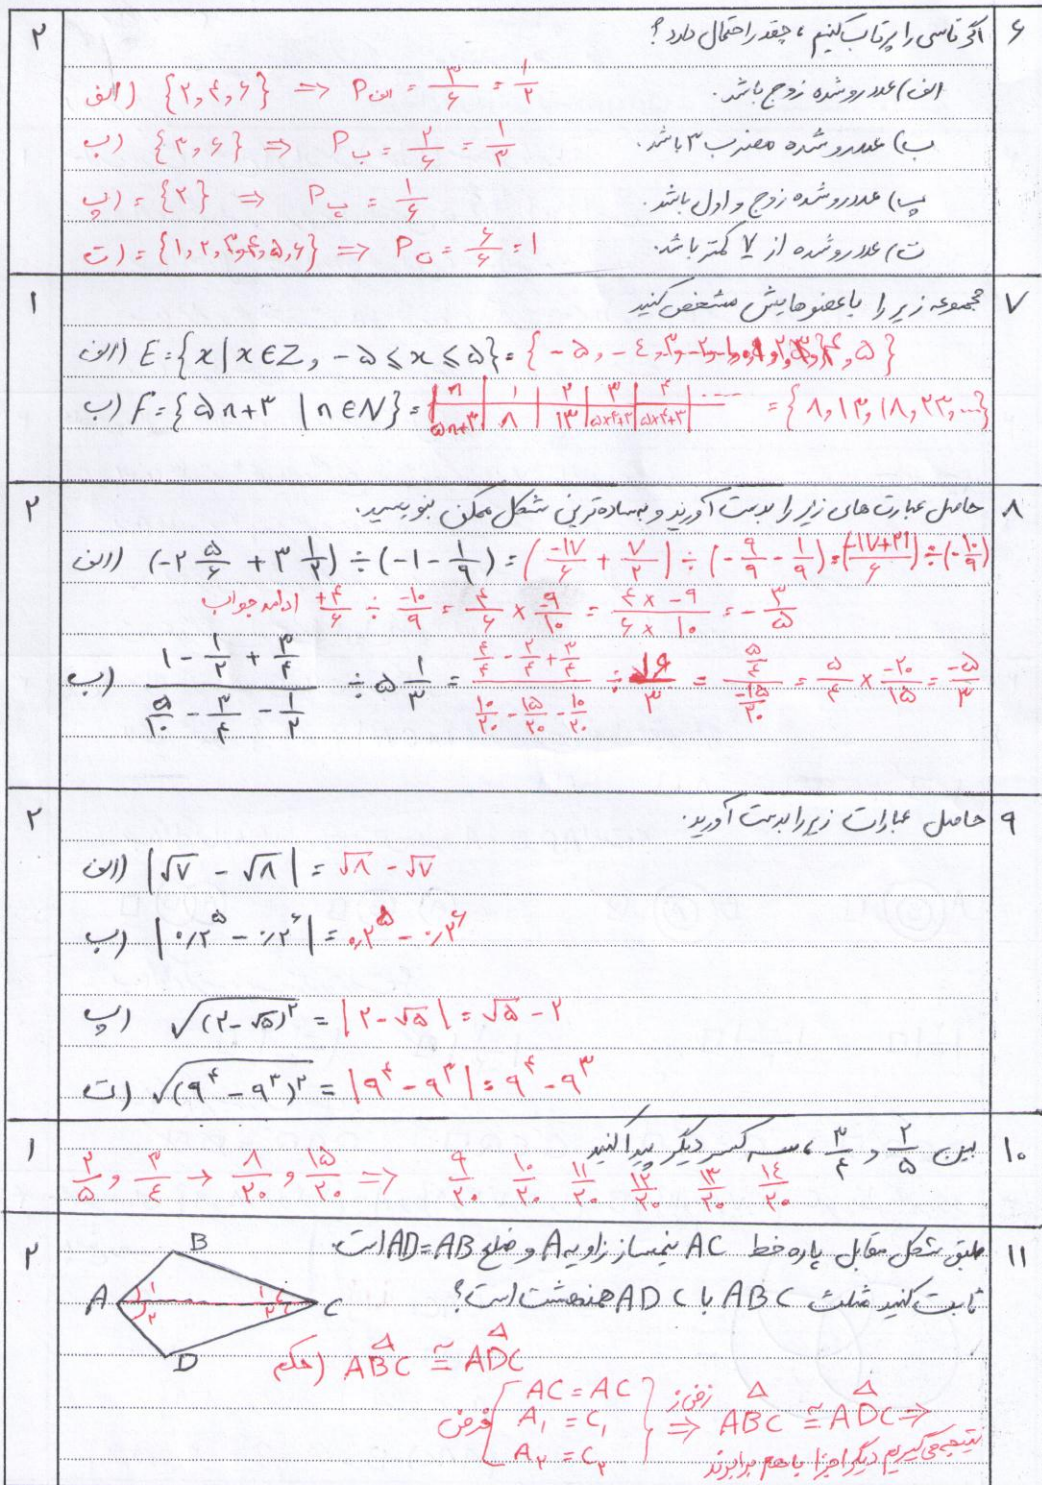 ۶ اگر تاسی را پرتاب کنیم، چقدر احتمال دارد؟ ۲
الف) عدد رو شده زوج باشد. الف) {۲,۴,۶} ⇒ Pالف = ۳/۶ = ۱/۲
ب) عدد رو شده مضرب ۳ باشد. ب) {۳,۶} ⇒ Pب = ۲/۶ = ۱/۳
پ) عدد رو شده زوج و اول باشد. پ) = {۲} ⇒ Pپ = ۱/۶
ت) عدد رو شده از ۷ کمتر باشد. ت) = {۱,۲,۳,۴,۵,۶} ⇒ Pت = ۶/۶ = ۱
۷ مجموعه زیر را با عضوهایش مشخص کنید ۱
الف) E = {x | x ∈ Z, -۵ ≤ x ≤ ۵} = {-۵, -۴, ۳, -۲, -۱, ۰, ۱, ۲, ۳, ۴, ۵}
ب) F = {۵n+۳ | n ∈ N} = n ۱ ۲ ۳ ۴ .... = {۸, ۱۳, ۱۸, ۲۳, ...}
۵n+۳ ۸ ۱۳ ۵×۳+۳ ۵×۴+۳
۸ حاصل عبارت های زیر را بدست آورید و به ساده ترین شکل ممکن بنویسید. ۲
الف) (-۲ ۵/۶ + ۳ ۱/۲) ÷ (-۱ - ۱/۹) = (-۱۷/۶ + ۷/۲) ÷ (-۹/۹ - ۱/۹) = (-۱۷+۲۱/۶) ÷ (-۱۰/۹)
ادامه جواب +۴/۶ ÷ -۱۰/۹ = ۴/۶ × -۹/۱۰ = ۴ × -۹/۶ × ۱۰ = -۳/۵
ب) (۱ - ۱/۲ + ۳/۴)/(۵/۱۰ - ۳/۴ - ۱/۲) ÷ ۵ ۱/۳ = (۴/۴ - ۲/۴ + ۳/۴)/(۱۰/۲۰ - ۱۵/۲۰ - ۱۰/۲۰) ÷ ۱۶/۳ = (۵/۴)/(-۱۵/۲۰) = ۵/۴ × -۲۰/۱۵ = -۵/۳
۹ حاصل عبارات زیر را بدست آورید. ۲
الف) |√۷ - √۸| = √۸ - √۷
ب) |۰/۲^۵ - ۰/۲^۶| = ۰/۲^۵ - ۰/۲^۶
پ) √(۲-√۵)^۲ = |۲-√۵| = √۵ - ۲
ت) √(۹^۴ - ۹^۳)^۲ = |۹^۴ - ۹^۳| = ۹^۴ - ۹^۳
۱۰ بین ۲/۵ و ۳/۴، سه کسر دیگر پیدا کنید ۱
۲/۵ , ۳/۴ → ۸/۲۰ , ۱۵/۲۰ ⇒ ۹/۲۰ ۱۰/۲۰ ۱۱/۲۰ ۱۲/۲۰ ۱۳/۲۰ ۱۴/۲۰
۱۱ طبق شکل مقابل پاره خط AC نیمساز زاویه A و ضلع AD=AB است. ۲
ثابت کنید مثلث ABC با ADC همنهشت است؟
B
A ۱ ۲ ۱ ۲ C
D
حکم) ABC ≅ ADC
فرض { AC = AC
A۱ = C۱
A۲ = C۲ } زض ز ⇒ ABC ≅ ADC ⇒
نتیجه می گیریم دیگر اجزا با هم برابرند